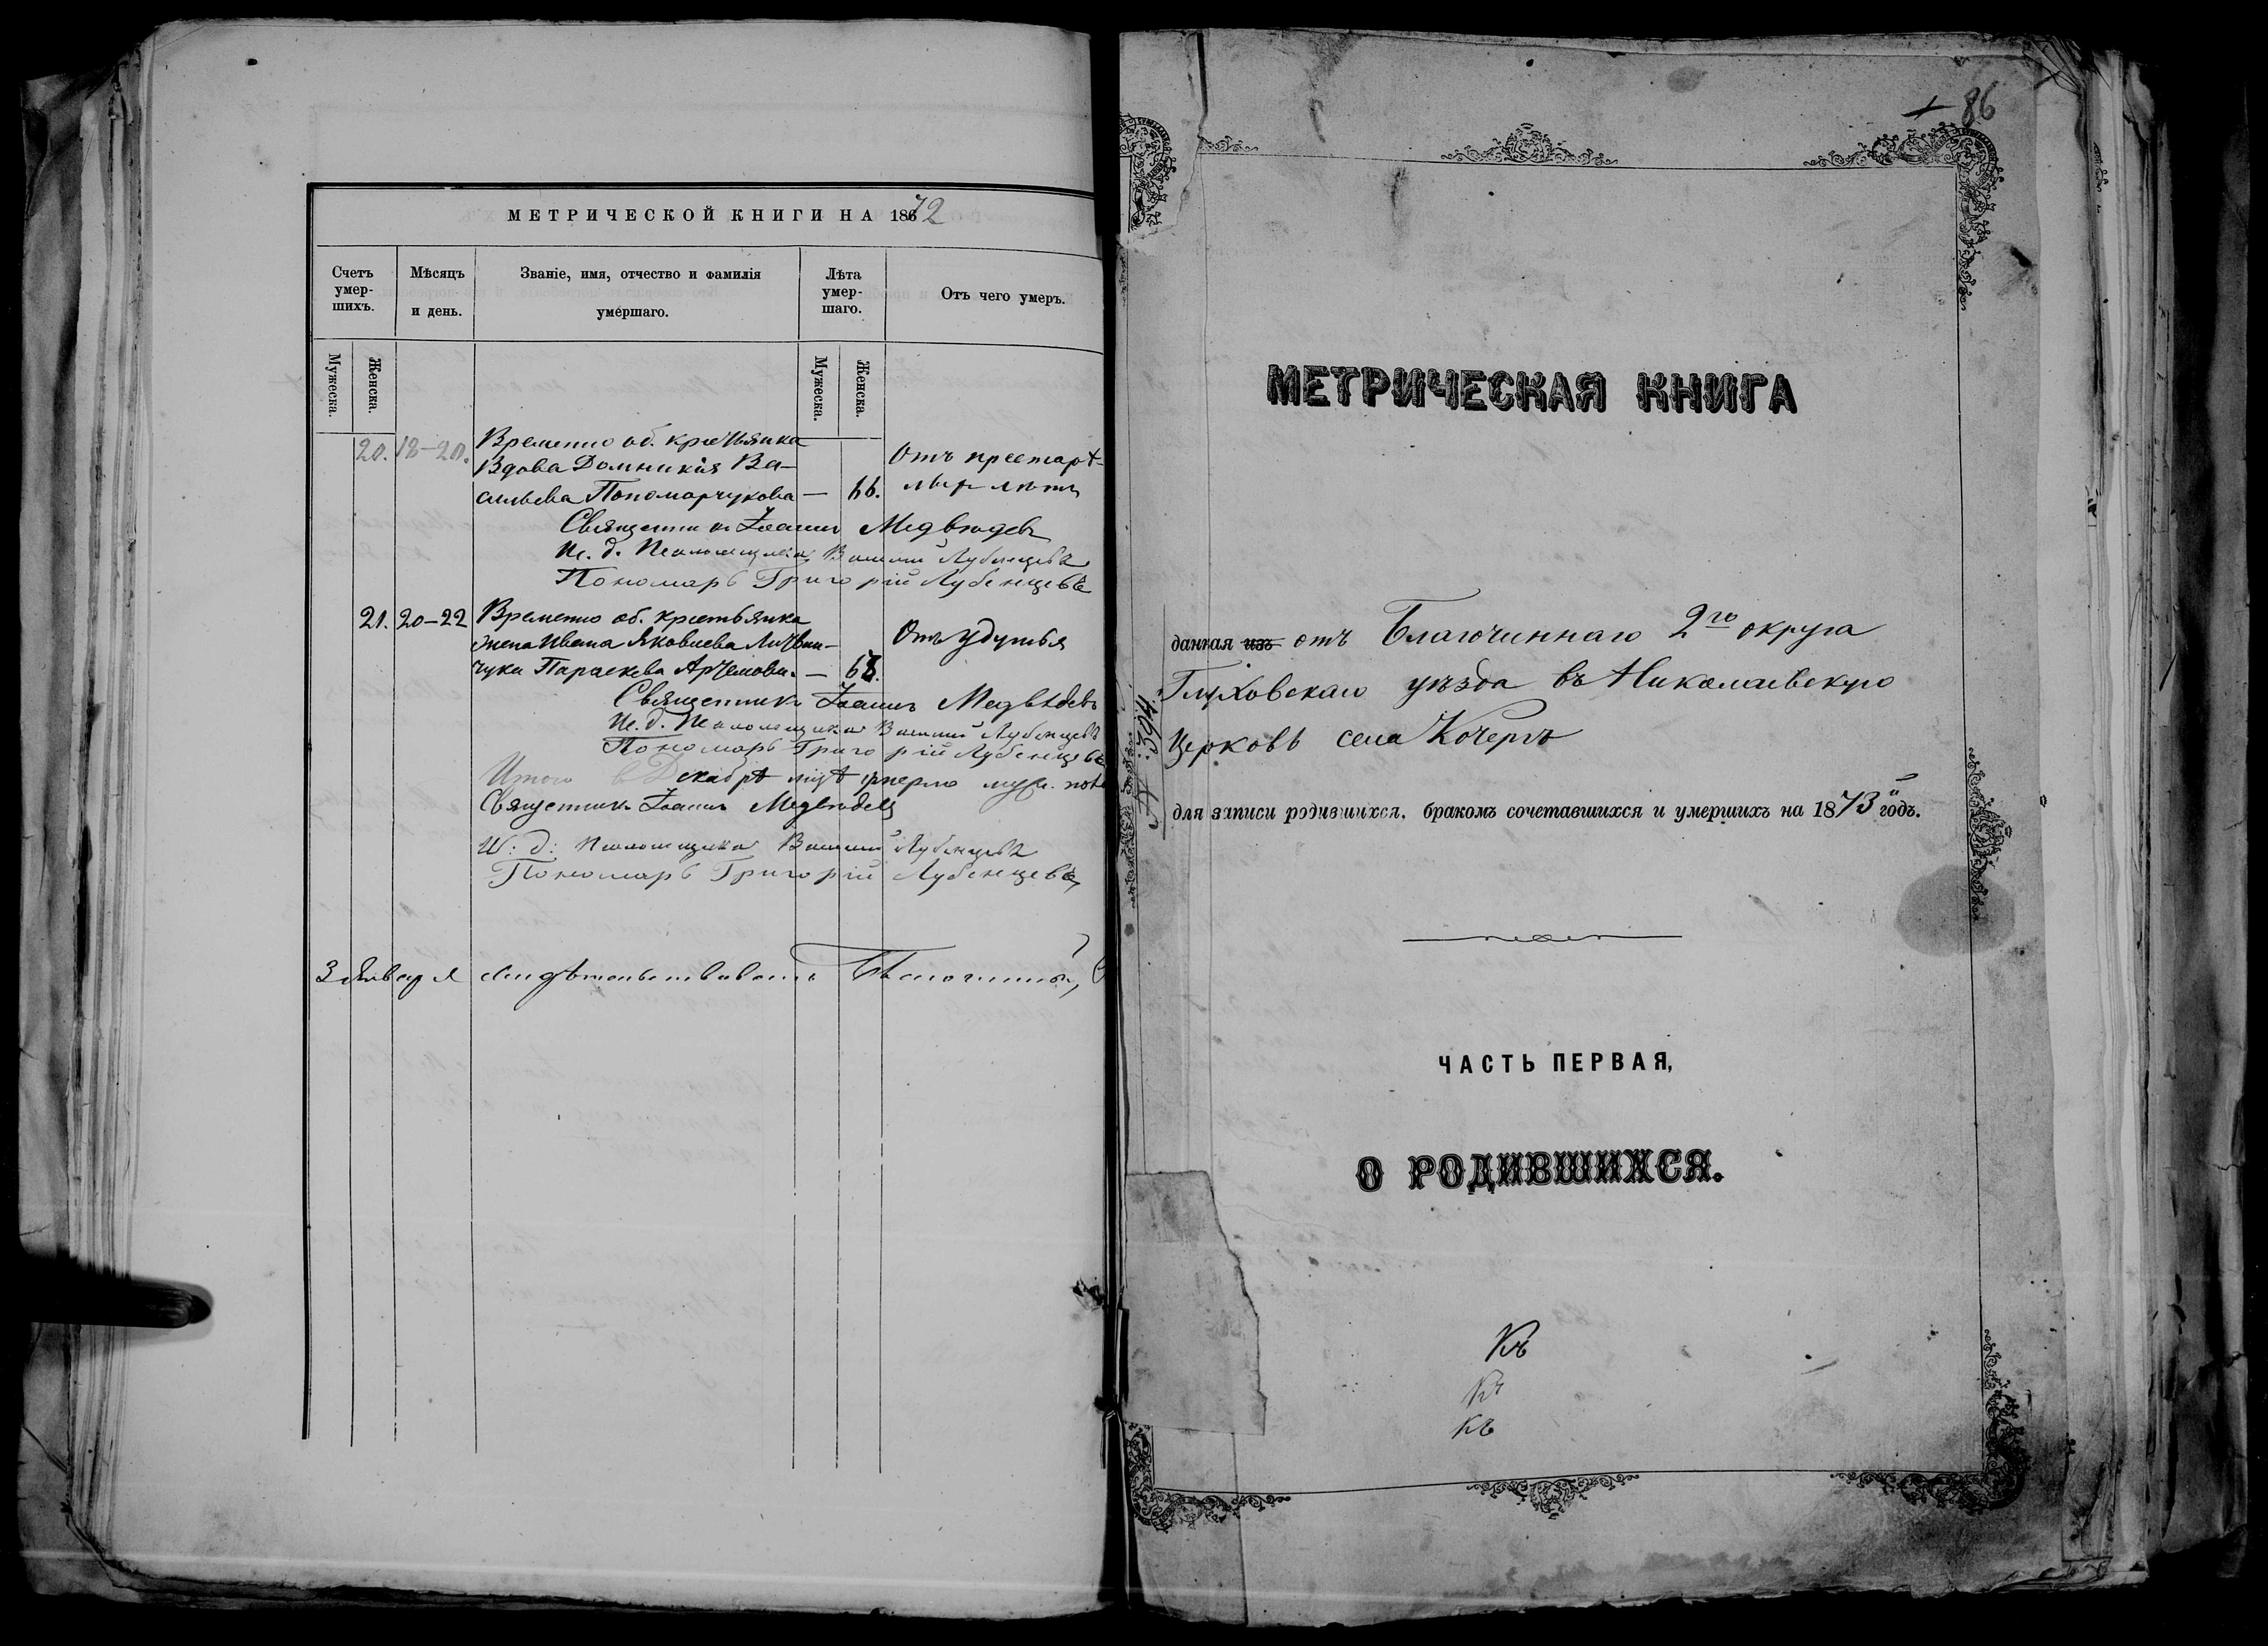 МЕТРИЧЕСКОЙ КНИГИ НА 1872
Счетъ умер-шихъ.
Мѣсяцъ и день.
Званіе, имя, отчество и фамилія умершаго.
Лѣта умер-шаго.
Отъ чего умеръ.
Мужеска.
Женска.
Мужеска.
Женска.
20. 18-20. Временно об. крестьянка
Вдова Домникія Ва-
сильева Пономарчукова — 66.
Отъ престарѣ-
лыхъ лѣтъ
Священникъ Іоаннъ Медвѣдевъ
И. д. Псаломщика Василій Лубенцевъ
Пономарь Григорій Лубенцевъ
21. 20-22 Временно об. крестьянка
жена Ивана Яковлева Литвин-
чука Параскева Артемова. — 68.
Отъ удушья
Священникъ Іоаннъ Медвѣдевъ
И. д. Псаломщика Василій Лубенцевъ
Пономарь Григорій Лубенцевъ
Итого в Декабрѣ умерло муж.
Священникъ Іоаннъ Медвѣдевъ
И: д: Псаломщика Василій Лубенцевъ
Пономарь Григорій Лубенцевъ
3 Января свидѣтельствовалъ Благочинный,
86
МЕТРИЧЕСКАЯ КНИГА
данная изъ отъ Благочиннаго 2го округа
Глуховскаго уѣзда въ Николаевскую
Церковь села Кочергъ
№ 394.
для записи родившихся, бракомъ сочетавшихся и умершихъ на 1873й годъ.
ЧАСТЬ ПЕРВАЯ,
О РОДИВШИХСЯ.
Къ
Къ
къ